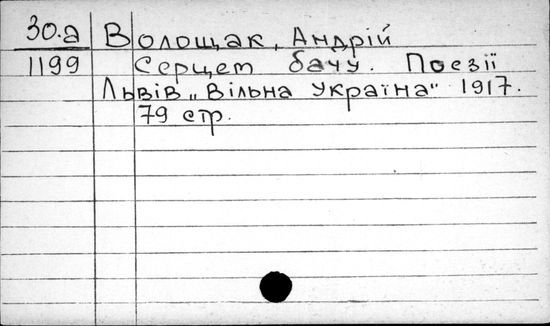 30.а Волощак, Андрій
1199 Серцем бачу. Поезії
Львів „Вільна Україна" 1917.
79 стр.